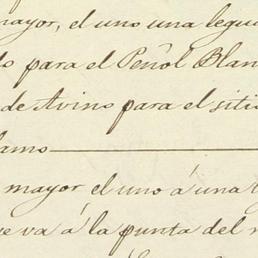 mayor, el uno una legua
para el Peñol Blan
de Avino para el sitio
lamo
mayor el uno á una
va á la punta del